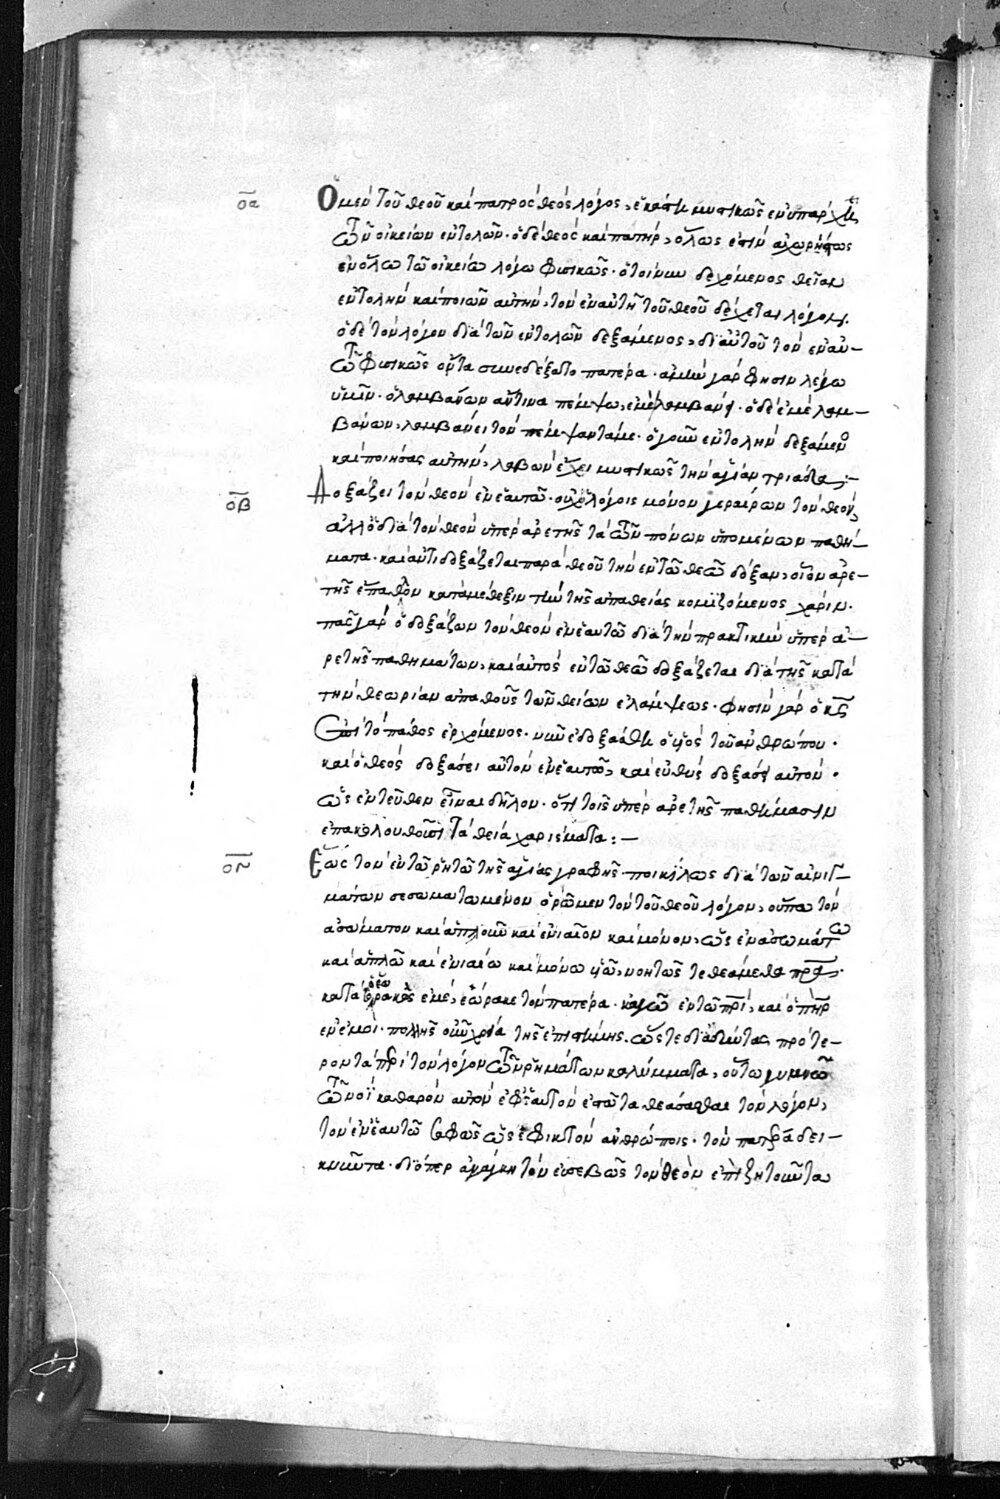 οα
Ὁ μὲν τοῦ θεοῦ καὶ πατρὸς θεὸς λόγος, ἑκάστη μυστικῶς ἐνυπάρχει
τῶν οἰκείων ἐντολῶν· ὁ δὲ θεὸς καὶ πατὴρ, ὅλως ἐστὶν ἀχωρήστως
ἐν ὅλω τῶ οἰκείω λόγω φυσικῶς· ὁ τοίνυν δεχόμενος θείαν
ἐντολὴν καὶ ποιῶν αὐτὴν, τὸν ἐν αὐτῆ τοῦ θεοῦ δέχεται λόγον.
ὁ δὲ τὸν λόγον διὰ τῶν ἐντολῶν δεξάμενος, δι' αὐτοῦ τὸν ἐν αὐ-
τῶ φυσικῶς ὄντα συνεδέξατο πατέρα· ἀμὴν γάρ φησιν λέγω
ὑμῖν· ὁ λαμβάνων ἄν τινα πέμψω, ἐμὲ λαμβάνει· ὁ δὲ ἐμὲ λαμ-
βάνων, λαμβάνει τὸν πέμψαντά με· ὁ γοῦν ἐντολὴν δεξάμενος
καὶ ποιήσας αὐτὴν, λαβὼν ἔχει μυστικῶς τὴν ἁγίαν τριάδα:-
οβ
Δοξάζει τὸν θεὸν ἐν ἑαυτῶ· οὐχ ὁ λόγοις μόνον γεραίρων τὸν θεὸν,
ἀλλ' ὁ διὰ τὸν θεὸν ὑπὲρ ἀρετῆς τὰ τῶν πόνων ὑπομένων παθή-
ματα· καὶ ἀντιδοξάζεται παρὰ θεοῦ τὴν ἐν τῶ θεῶ δόξαν, οἷον ἀρε-
τῆς ἔπαθλον κατὰ μέθεξιν τὴν τῆς ἀπαθείας κομιζόμενος χάριν.
πᾶς γὰρ ὁ δοξάζων τὸν θεὸν ἐν ἑαυτῶ διὰ τὴν πρακτικὴν ὑπὲρ ἀ-
ρετῆς παθημάτων, καὶ αὐτὸς ἐν τῶ θεῶ δοξάζεται διὰ τῆς κατὰ
τὴν θεωρίαν ἀπαθοῦς τῶν θείων ἐλάμψεως· φησὶν γὰρ ὁ κς
ἐπὶ τὸ πάθος ἐρχόμενος· νῦν ἐδοξάσθη ὁ υἱὸς τοῦ ἀνθρώπου·
καὶ ὁ θεὸς δοξάσει αὐτὸν ἐν ἑαυτῶ, καὶ εὐθὺς δοξάσει αὐτόν·
ὡς ἐντεῦθεν εἶναι δῆλον· ὅτι τοῖς ὑπὲρ ἀρετῆς παθήμασιν
ἐπακολουθοῦσι τὰ θεῖα χαρίσματα:-
ογ
Ἕως τὸν ἐν τῶ ῥητῶ τῆς ἁγίας γραφῆς ποικίλως διὰ τῶν αἰνιγ-
μάτων σεσωματωμένον ὁρῶμεν τὸν τοῦ θεοῦ λόγον, οὔπω τὸν
ἀσώματον καὶ ἁπλοῦν καὶ ἑνιαῖον καὶ μόνον, ὡς ἐν ἀσωμάτω
καὶ ἁπλῶ καὶ ἑνιαίω καὶ μόνω υἱῶ, νοητῶς τεθεάμεθα πρα·
κατὰ τὸ ὁ ἑωρακὼς ἐμὲ, ἑώρακε τὸν πατέρα· κἀγὼ ἐν τῶ πρι, καὶ ὁ πηρ
ἐν ἐμοί· πολλῆς οὖν χρεία τῆς ἐπιστήμης. ὥστε διαδύντας πρότε-
ρον τὰ περὶ τὸν λόγον τῶν ῥημάτων καλύμματα, οὕτω γυμνῶ
τῶ νοῒ καθαρὸν αὐτὸν ἐφ' ἑαυτὸν ἑστῶτα θεάσασθαι τὸν λόγον,
τὸν ἐν ἑαυτῶ σαφῶς ὡς ἐφικτὸν ἀνθρώποις· τὸν πατέρα δει-
κνύντα· διόπερ ἀνάγκη τὸν εὐσεβῶς τὸν θεὸν ἐπιζητοῦντα